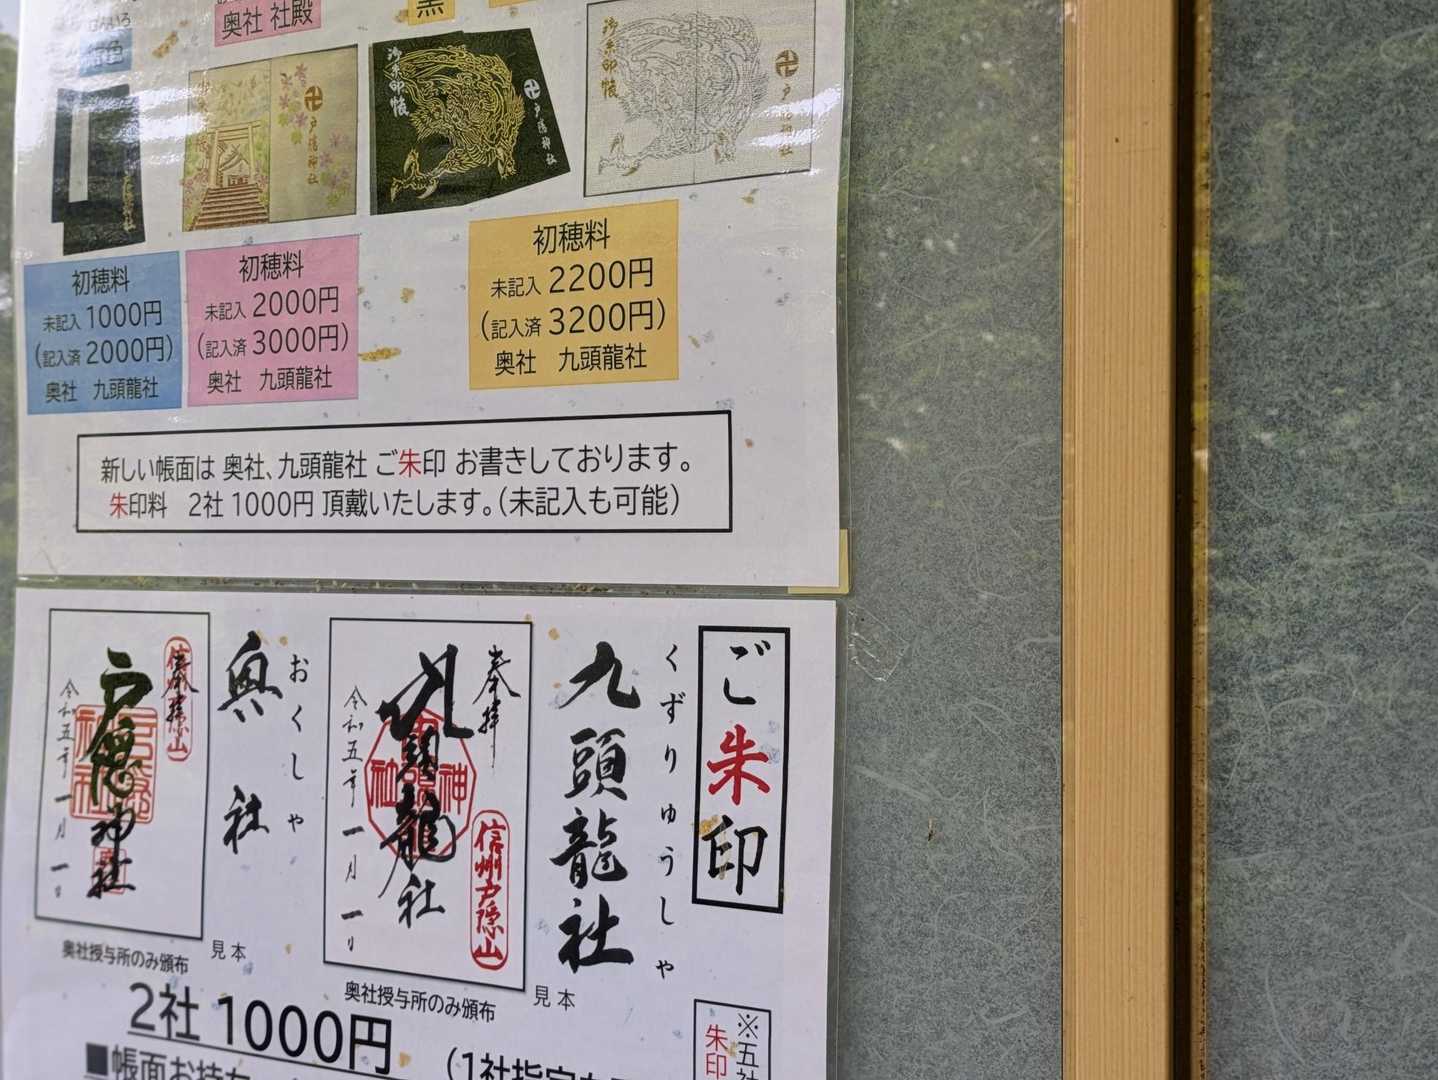 奥社 社殿
黒
御朱印帳
戸隠神社
戸隠神社
御朱印帳
戸隠神社
初穂料
未記入 1000円
(記入済 2000円)
奥社 九頭龍社
初穂料
未記入 2000円
(記入済 3000円)
奥社 九頭龍社
初穂料
未記入 2200円
(記入済 3200円)
奥社 九頭龍社
新しい帳面は 奥社、九頭龍社 ご朱印 お書きしております。
朱印料 2社 1000円 頂戴いたします。(未記入も可能)
ご朱印
くずりゅうしゃ
九頭龍社
奉拝
九頭龍社
信州戸隠山
令和五年一月一日
見本
奥社授与所のみ頒布
おくしゃ
奥社
奉拝
信州戸隠山
戸隠神社
令和五年一月一日
見本
奥社授与所のみ頒布
2社 1000円
※五社
朱印
■帳面お持ち